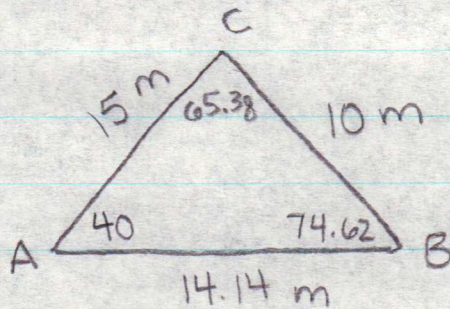 C
15 m
65.38
10 m
A
40
74.62
B
14.14 m